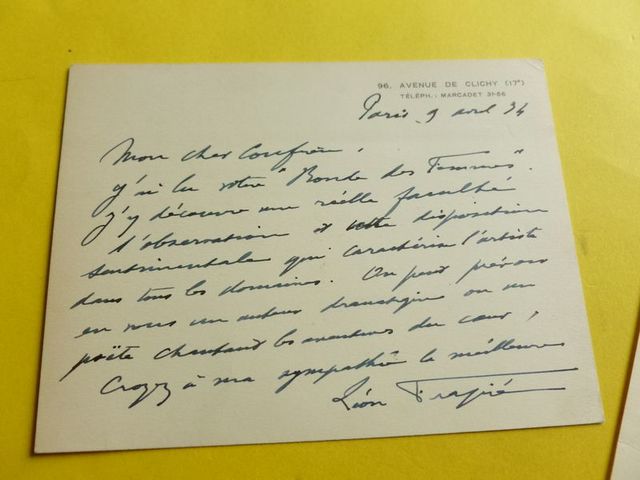 96, AVENUE DE CLICHY (17e)
TÉLÉPH.: MARCADET 31-56
Paris 9 avril 34
Mon cher Confrère,
J'ai lu votre "Ronde des Femmes".
J'y découvre une réelle faculté
d'observation et cette disposition
sentimentale qui caractérise l'artiste
dans tous les domaines. On peut prévoir
en vous un auteur dramatique ou un
poète chantant les aventures du cœur,
Croyez à ma sympathie la meilleure
Léon Frapié